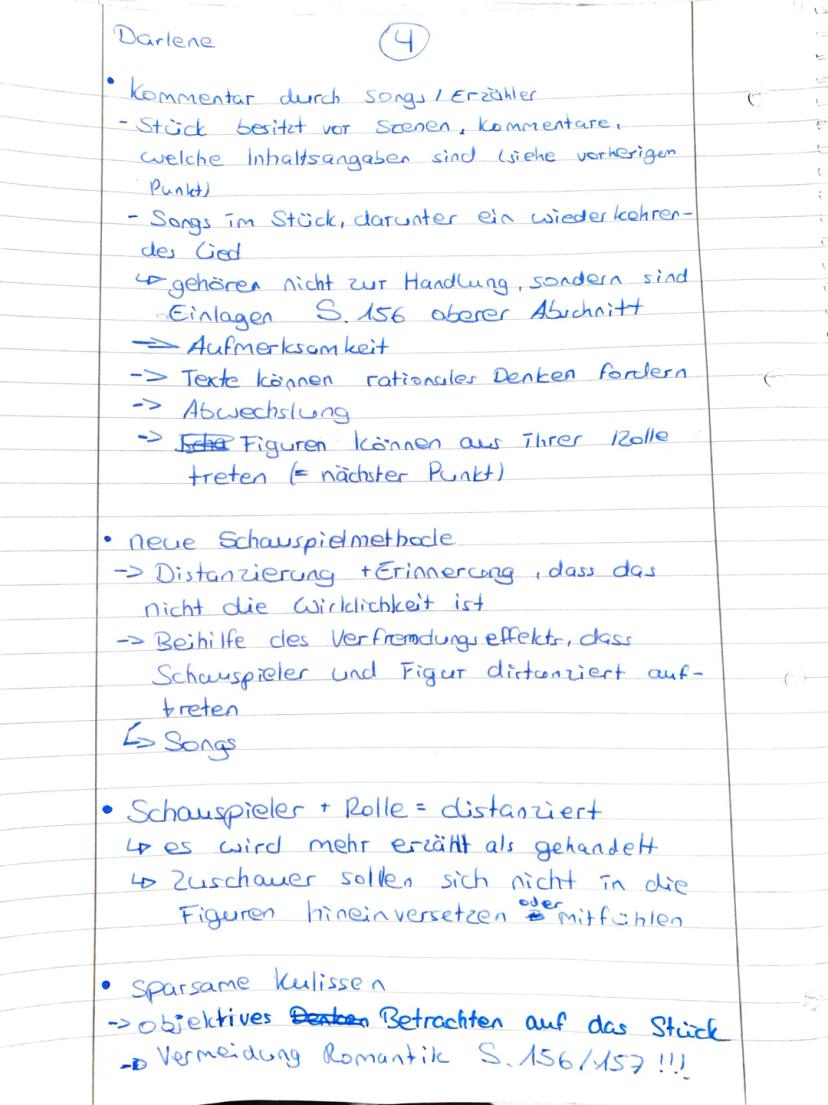 Darlene 4
• Kommentar durch Songs / Erzähler
- Stück besitzt vor Szenen, Kommentare,
welche Inhaltsangaben sind (siehe vorherigen
Punkt)
- Songs im Stück, darunter ein wiederkehren-
des Lied
↳ gehören nicht zur Handlung, sondern sind
Einlagen S. 156 oberer Abschnitt
=> Aufmerksamkeit
-> Texte können rationales Denken fordern
-> Abwechslung
-> Figuren können aus ihrer Rolle
treten (= nächster Punkt)
• neue Schauspielmethode
-> Distanzierung + Erinnerung, dass das
nicht die Wirklichkeit ist
-> Beihilfe des Verfremdungseffekts, dass
Schauspieler und Figur distanziert auf-
treten
↳ Songs
• Schauspieler + Rolle = distanziert
↳ es wird mehr erzählt als gehandelt
↳ Zuschauer sollen sich nicht in die
Figuren hineinversetzen oder mitfühlen
• sparsame Kulissen
-> objektives Denken Betrachten auf das Stück
-> Vermeidung Romantik S. 156/157 !!!